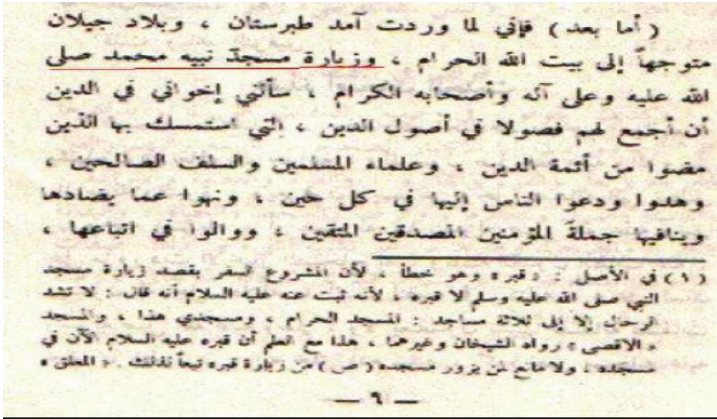 ( أما بعد ) فإني لما وردت آمد طبرستان ، وبلاد جيلان
متوجهاً إلى بيت الله الحرام ، وزيارة مسجد نبيه محمد صلى
الله عليه وعلى آله وأصحابه الكرام ، سألني إخواني في الدين
أن أجمع لهم فصولا في أصول الدين ، التي استمسك بها الذين
مضوا من أئمة الدين ، وعلماء المسلمين والسلف الصالحين ،
وهدوا ودعوا الناس إليها في كل حين ، ونهوا عما يضادها
وينافيها جملة المؤمنين المصدقين المتقين ، ووالوا في اتباعها ،
(١) في الأصل : « قبره وهو خطأ ، لأن المشروع السفر بقصد زيارة مسجد
النبي صلى الله عليه وسلم لا قبره ، لأنه ثبت عنه عليه السلام أنه قال : لا تشد
الرحال إلا إلى ثلاثة مساجد : المسجد الحرام ، ومسجدي هذا ، والمسجد
« الاقصى » رواه الشيخان وغيرهما ، هذا مع العلم أن قبره عليه السلام الآن في
مسجده ، ولا مانع لمن يزور مسجده (ص) من زيارة قبره تبعاً لذلك . « المعلق »
— ٦ —